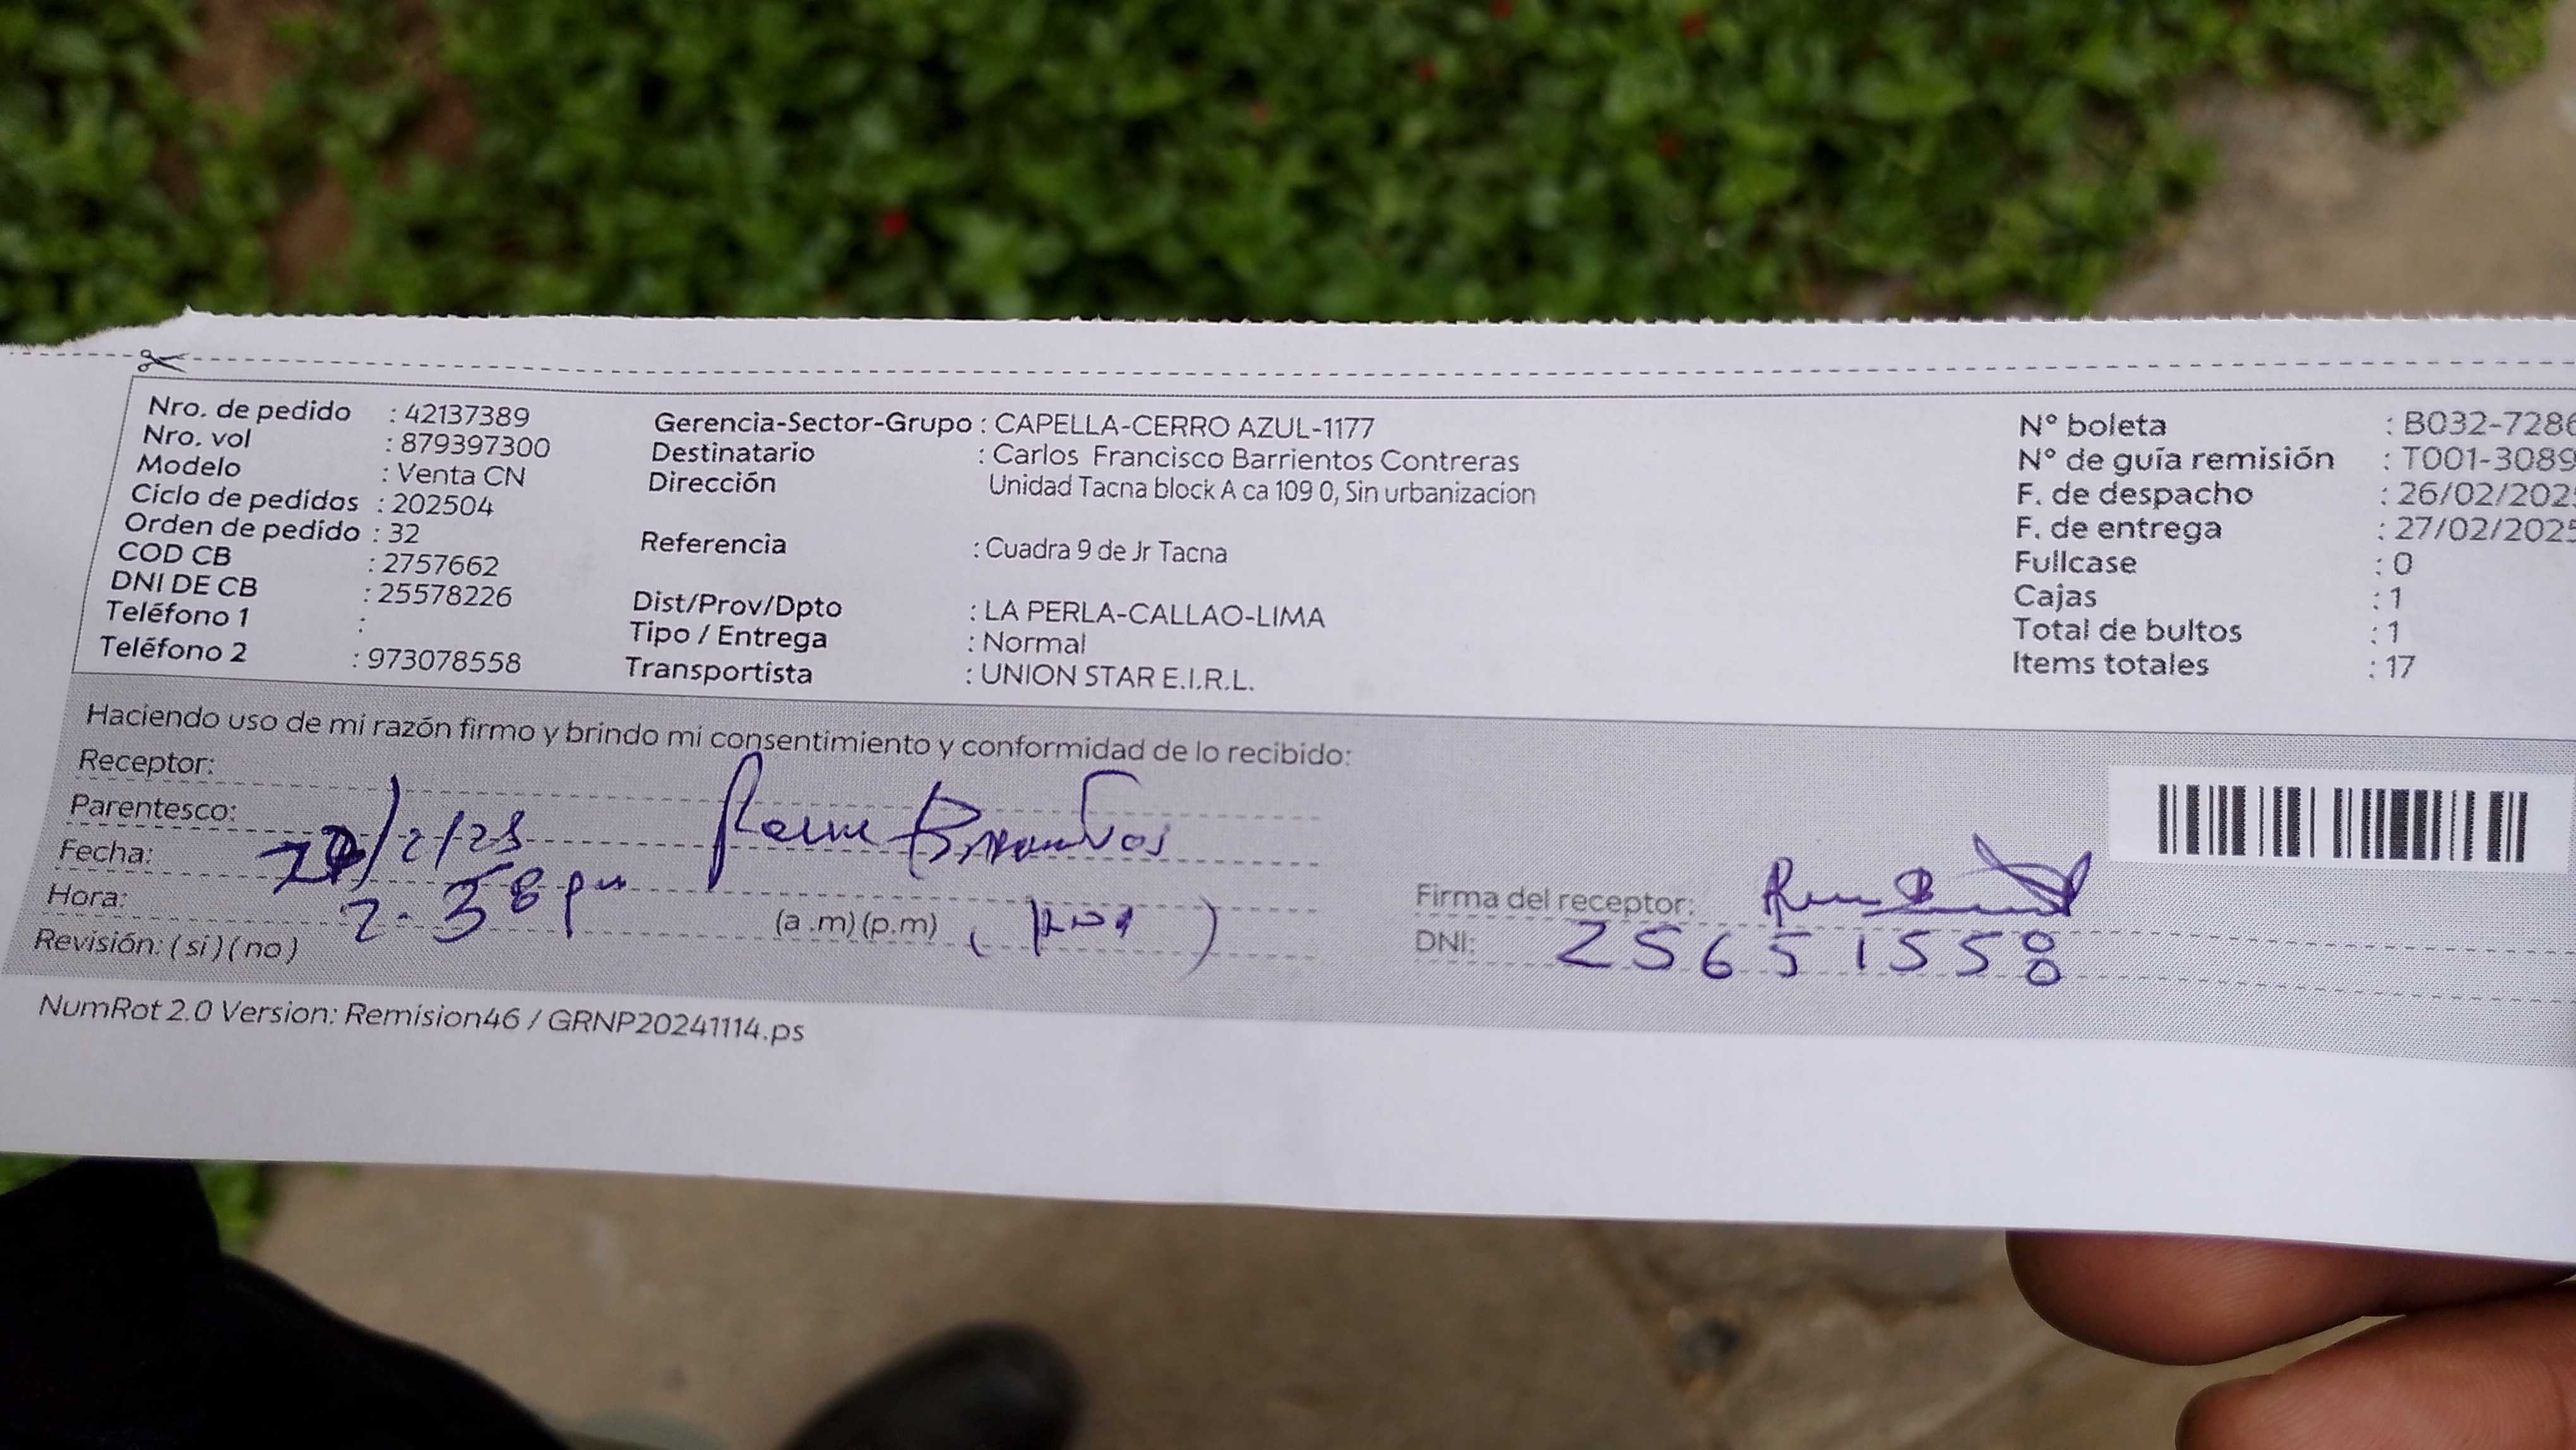 Nro. de pedido : 42137389
Nro. vol : 879397300
Modelo : Venta CN
Ciclo de pedidos : 202504
Orden de pedido : 32
COD CB : 2757662
DNI DE CB : 25578226
Teléfono 1 :
Teléfono 2 : 973078558
Gerencia-Sector-Grupo : CAPELLA-CERRO AZUL-1177
Destinatario : Carlos Francisco Barrientos Contreras
Dirección Unidad Tacna block A ca 109 0, Sin urbanizacion
Referencia : Cuadra 9 de Jr Tacna
Dist/Prov/Dpto : LA PERLA-CALLAO-LIMA
Tipo / Entrega : Normal
Transportista : UNION STAR E.I.R.L.
N° boleta : B032-7286
N° de guía remisión : T001-3089
F. de despacho : 26/02/202
F. de entrega : 27/02/2025
Fullcase : 0
Cajas : 1
Total de bultos : 1
Items totales : 17
Haciendo uso de mi razón firmo y brindo mi consentimiento y conformidad de lo recibido:
Receptor:
Parentesco:
Fecha:
Hora: 2.38 pm (a .m) (p.m)
Revisión: ( si ) ( no )
Firma del receptor:
DNI: 25651558
NumRot 2.0 Version: Remision46 / GRNP20241114.ps